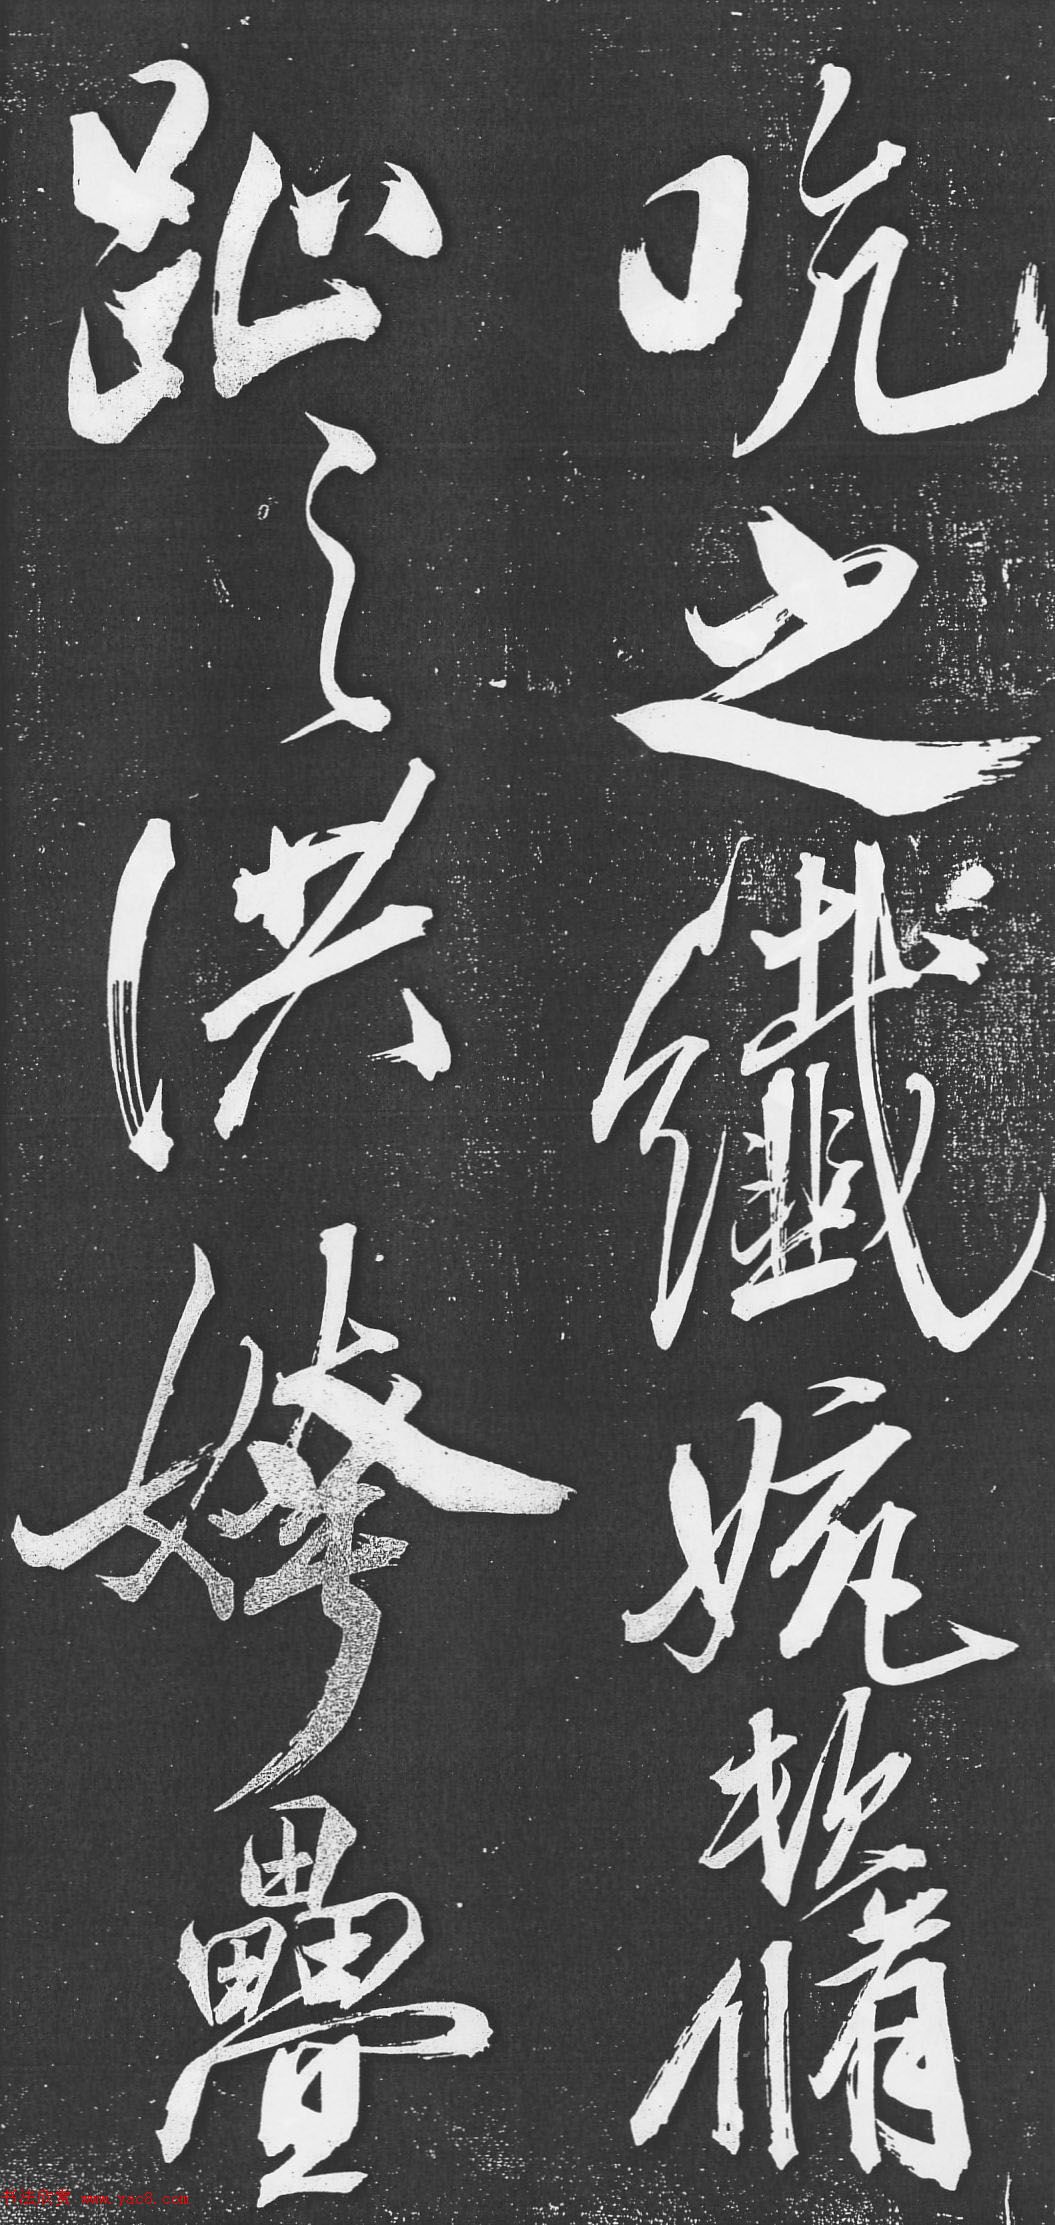 吭之纖婉頓脩
趾之洪姱疊
书法欣赏 www.yac8.com